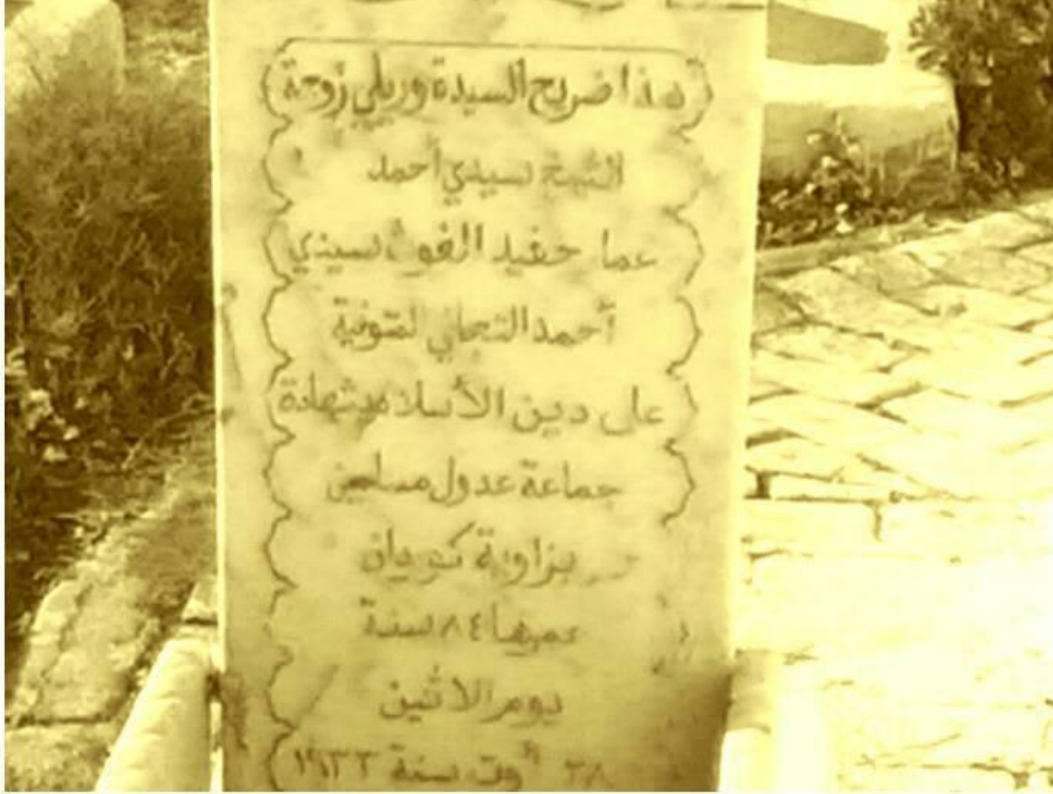 هذا ضريح السيدة وريلي زوجة
الشيخ سيدي أحمد
عمار حفيد الغوث سيدي
أحمد التجاني المتوفية
على دين الأسلام بشهادة
جماعة عدول مسلمين
بزاوية كوردان
عمرها ٨٤ سنة
يوم الاثنين
٢٨ أوت سنة ١٩٣٣